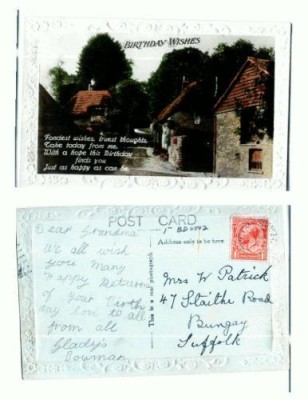 BIRTHDAY WISHES
Fondest wishes, truest thoughts,
Take today from me,
With a hope this Birthday
finds you
Just as happy as can be.
POST CARD
Address only to be here.
This is a real photograph
Dear Grandma
We all wish
you many
Happy Returns
of your Birth
day love to all
from all
Gladys
Bowman
Mrs W Patrick
47 Staithe Road
Bungay
Suffolk